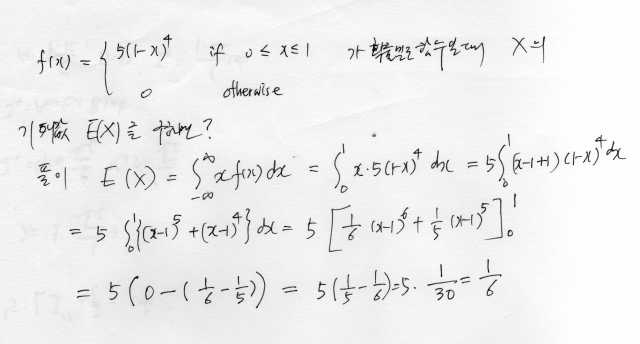 f(x) = { 5(1-x)^4 if 0 ≤ x ≤ 1 가 확률밀도함수일때 X의
0 otherwise
기댓값 E(X)를 구하면?
풀이 E(X) = ∫_{-∞}^{∞} x f(x) dx = ∫_0^1 x·5(1-x)^4 dx = 5∫_0^1 (x-1+1)(1-x)^4 dx
= 5 ∫_0^1 {(x-1)^5 + (x-1)^4} dx = 5 [1/6 (x-1)^6 + 1/5 (x-1)^5]_0^1
= 5(0-(1/6-1/5)) = 5(1/5-1/6)=5·1/30=1/6